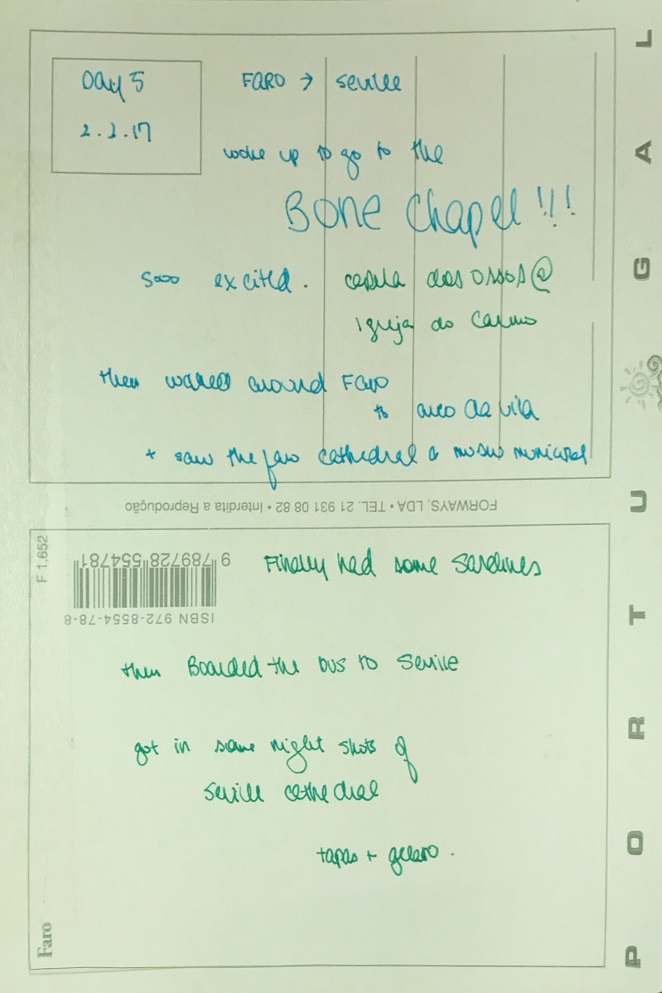 Day 5
2.2.17
FARO → Seville
woke up to go to the
Bone Chapel!!!
sooo excited. capela dos ossos @
Igreja do Carmo
then walked around Faro
to arco da vila
+ saw the faro cathedral & museu municipal
FORWAYS, LDA • TEL. 21 931 08 82 • Interdita a Reprodução
F 1.652
9 789728 554781
ISBN 972-8554-78-8
Finally had some sardines
then Boarded the bus to Seville
got in some night shots of
Seville cathedral
tapas + gelato.
Faro
PORTUGAL